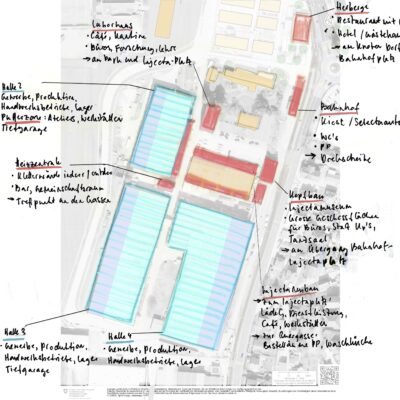 Laborhaus
• Café, Kantine
• Büros, Forschung, Lehre
→ am Bach und Injecta-Platz
Herberge
• Restaurant mit
• Hotel / Gästehaus
→ am Knoten Dorf
Bahnhofplatz
Halle 2
Gewerbe, Produktion,
Handwerksbetriebe, Lager
Pufferzone: Ateliers, Werkstätten
Tiefgarage
Bahnhof
• Kiosk / Selecta
• WC's
• PP
→ Drehscheibe
Heizzentrale
• Kletterwände indoor / outdoor
• Bar, Gemeinschaftsraum
→ Treffpunkt an den Gassen
Kopfbau
• Injectamuseum
• Grosse Geschossflächen
für Büros, Start Up's,
Tanzsaal
→ am Übergang Bahnhof-
Injectaplatz
Injectaneubau
→ zum Injectaplatz
Lädeli, Dienstleistung,
Café, Werkstätten
→ zur Quergasse
Halle 3
• Gewerbe, Produktion,
Handwerksbetriebe, Lager
Tiefgarage
Halle 4
• Gewerbe, Produktion,
Handwerksbetriebe, Lager